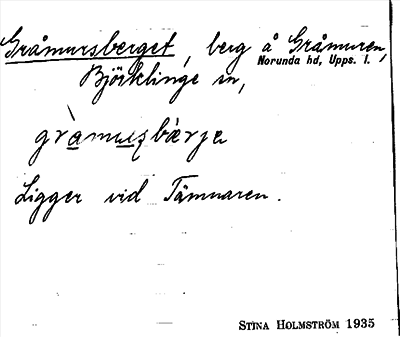 Gråmursberget, berg å Gråmuren,
Norunda hd, Upps. l.
Björklinge sn,
gràmusbàrjə
Ligger vid Tämnaren.
STINA HOLMSTRÖM 1935